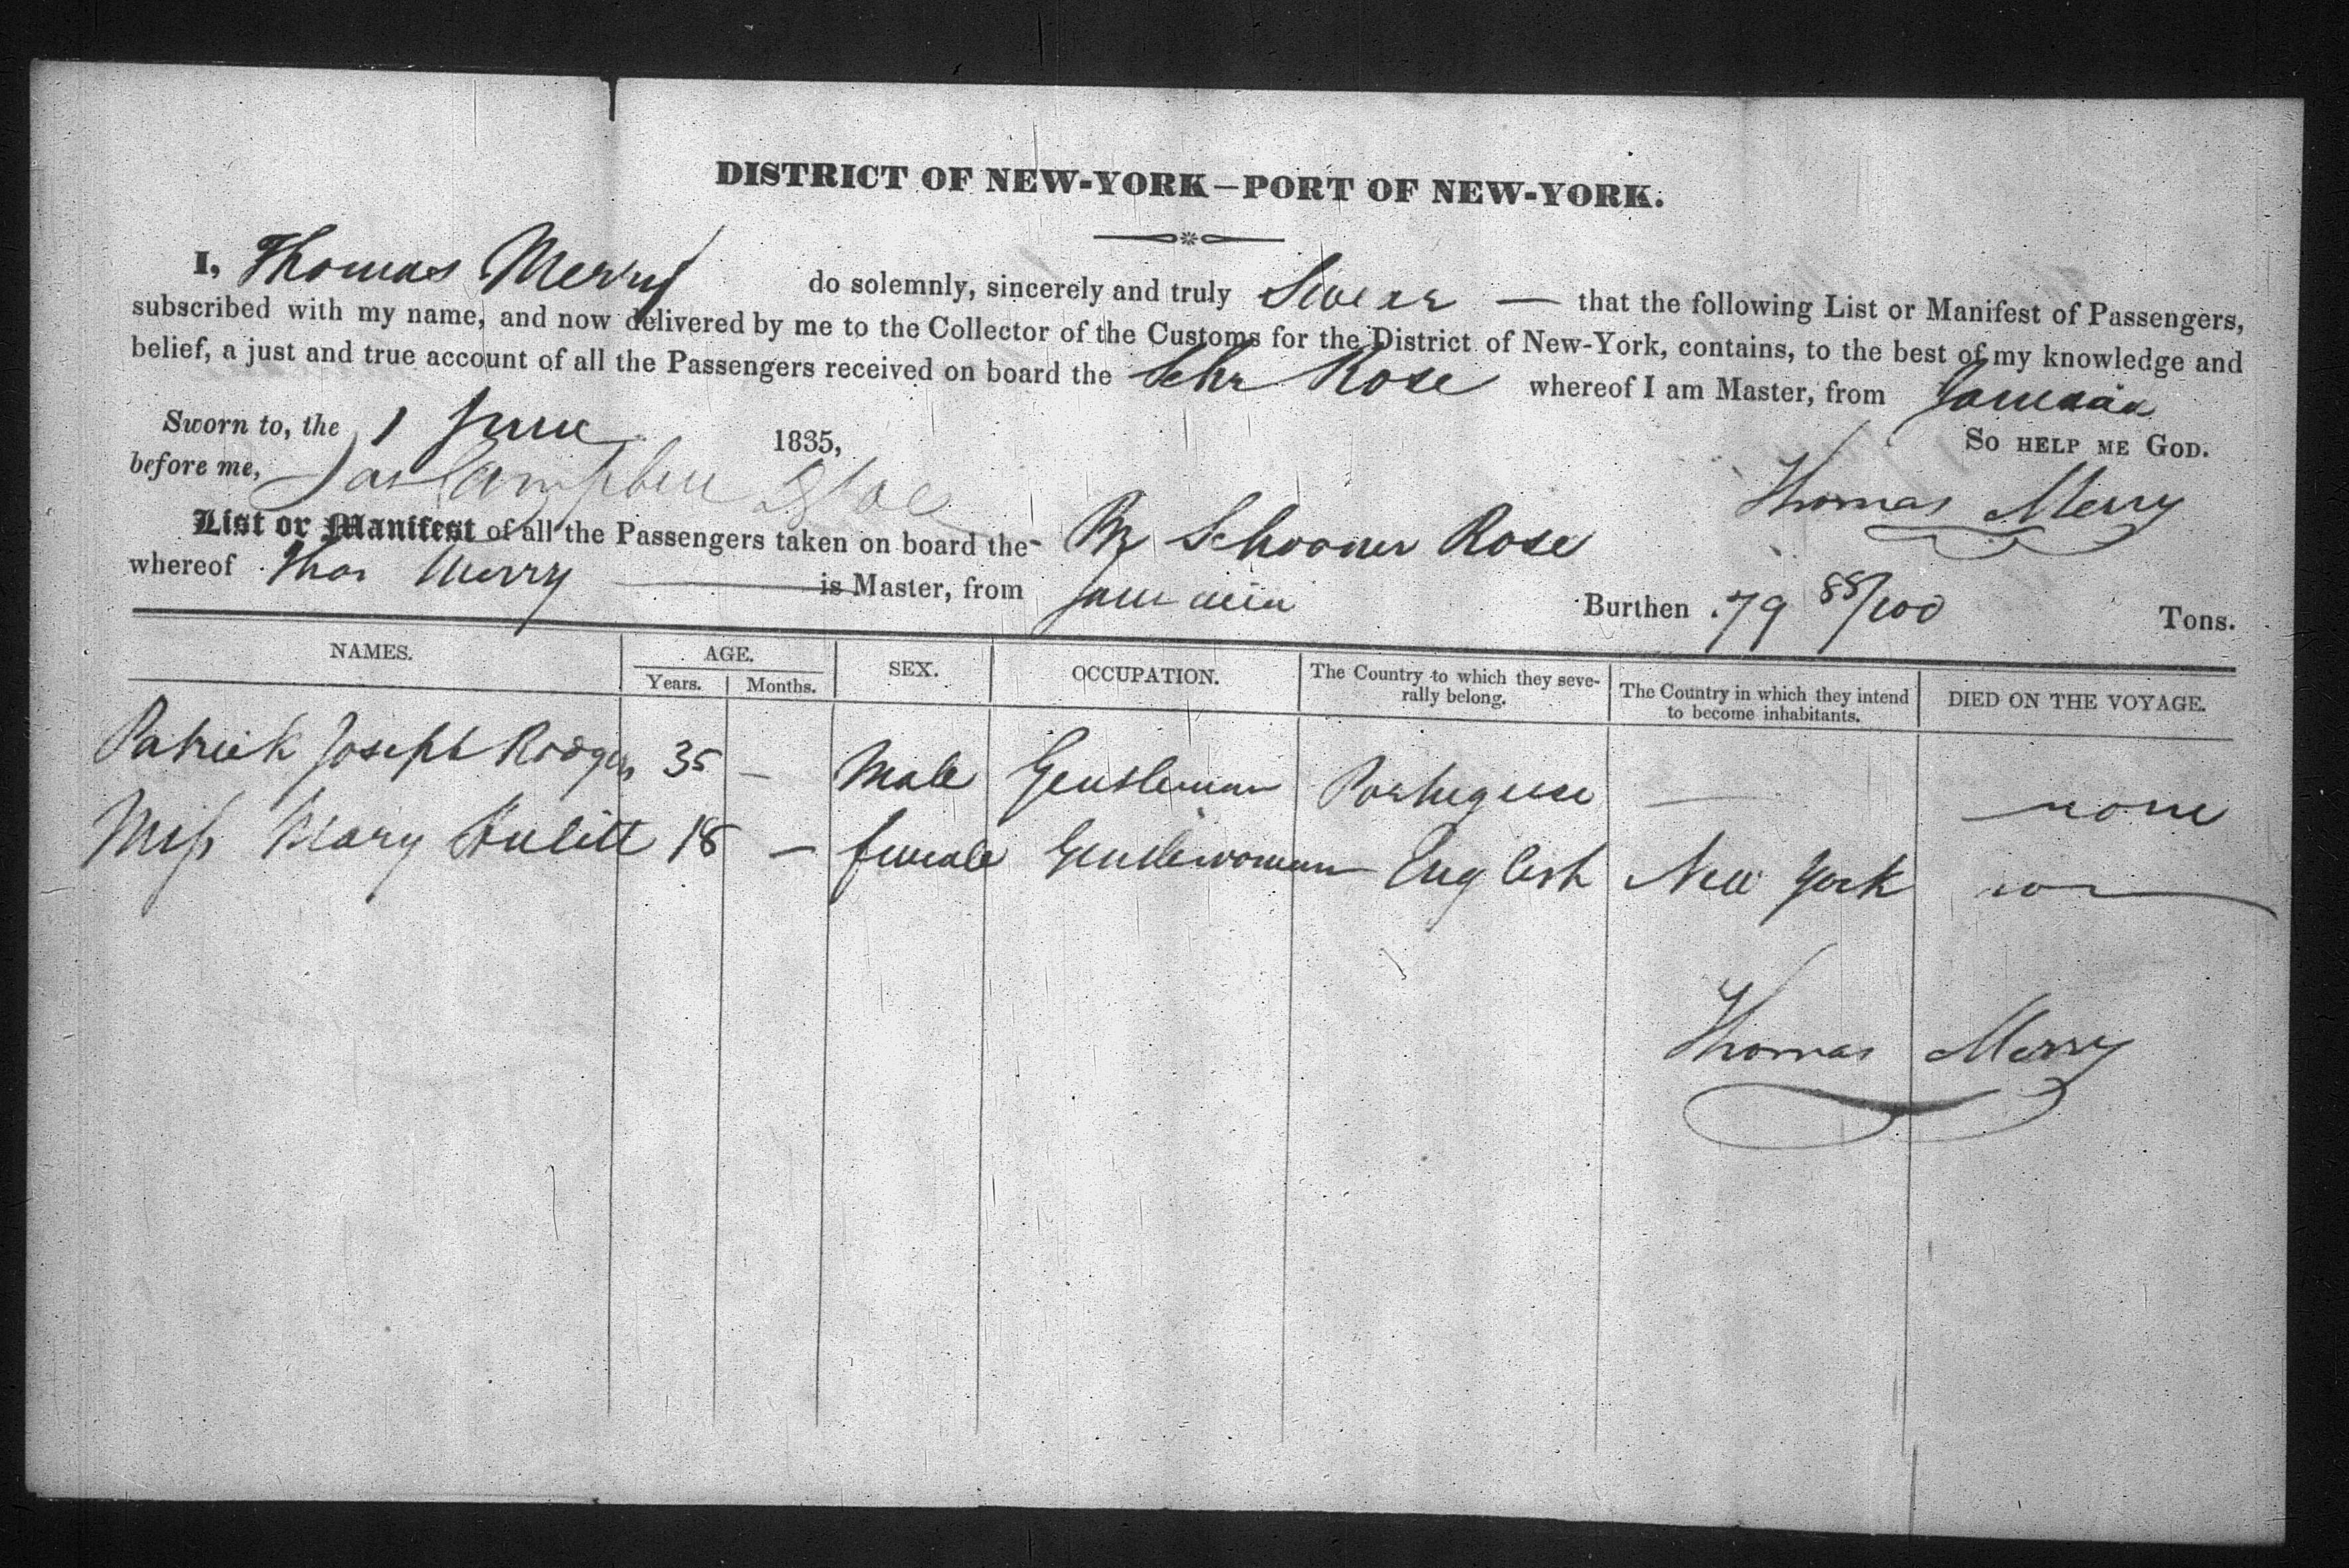 DISTRICT OF NEW-YORK—PORT OF NEW-YORK.
I, Thomas Merry do solemnly, sincerely and truly Swear — that the following List or Manifest of Passengers,
subscribed with my name, and now delivered by me to the Collector of the Customs for the District of New-York, contains, to the best of my knowledge and
belief, a just and true account of all the Passengers received on board the Schr Rose whereof I am Master, from Jamaica
Sworn to, the 1 June 1835, SO HELP ME GOD.
before me, Jas Campbell Thomas Merry
List or Manifest of all the Passengers taken on board the Schooner Rose
whereof Thos Merry is Master, from Jamaica Burthen 79 88/100 Tons.
NAMES. AGE. SEX. OCCUPATION. The Country to which they seve-rally belong. The Country in which they intend to become inhabitants. DIED ON THE VOYAGE.
Years. Months.
Patrick Joseph Rodgers 35 — Male Gentleman Portuguese — none
Miss Mary Hulitt 18 — female Gentlewoman English New York
Thomas Merry